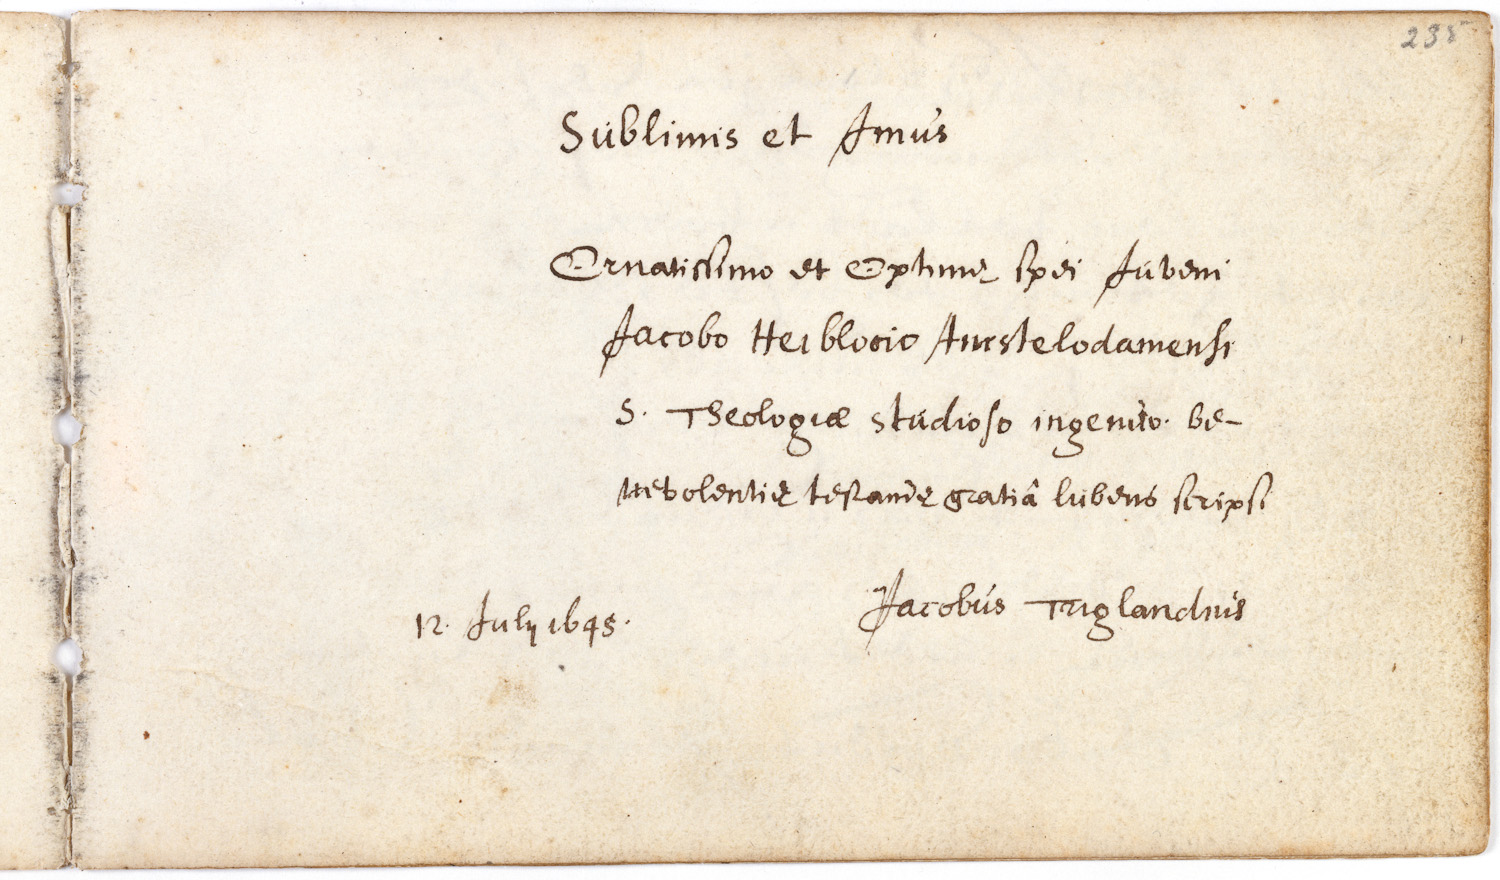 235
Sublimis et Imus
Ornatissimo et Optimę spei Juveni
Jacobo Heiblocio Amstelodamensi
S. Theologiæ studioso ingenuo. be-
nevolentię testandę gratiâ lubens scripsi
Jacobus Triglandius
12. July 1645.